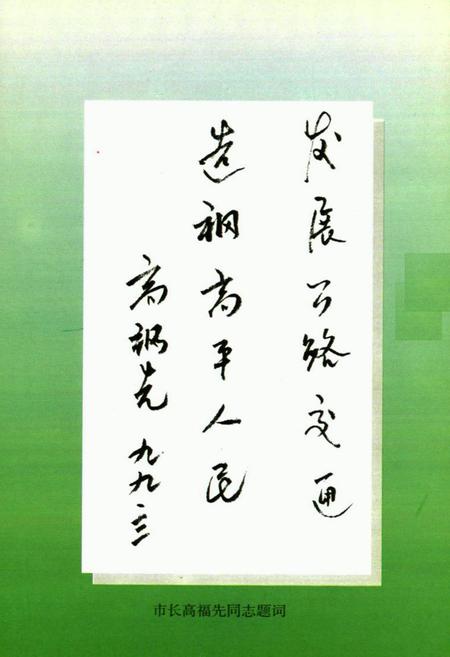 发展公路交通
造福高平人民
高福先 九九、三
市长高福先同志题词